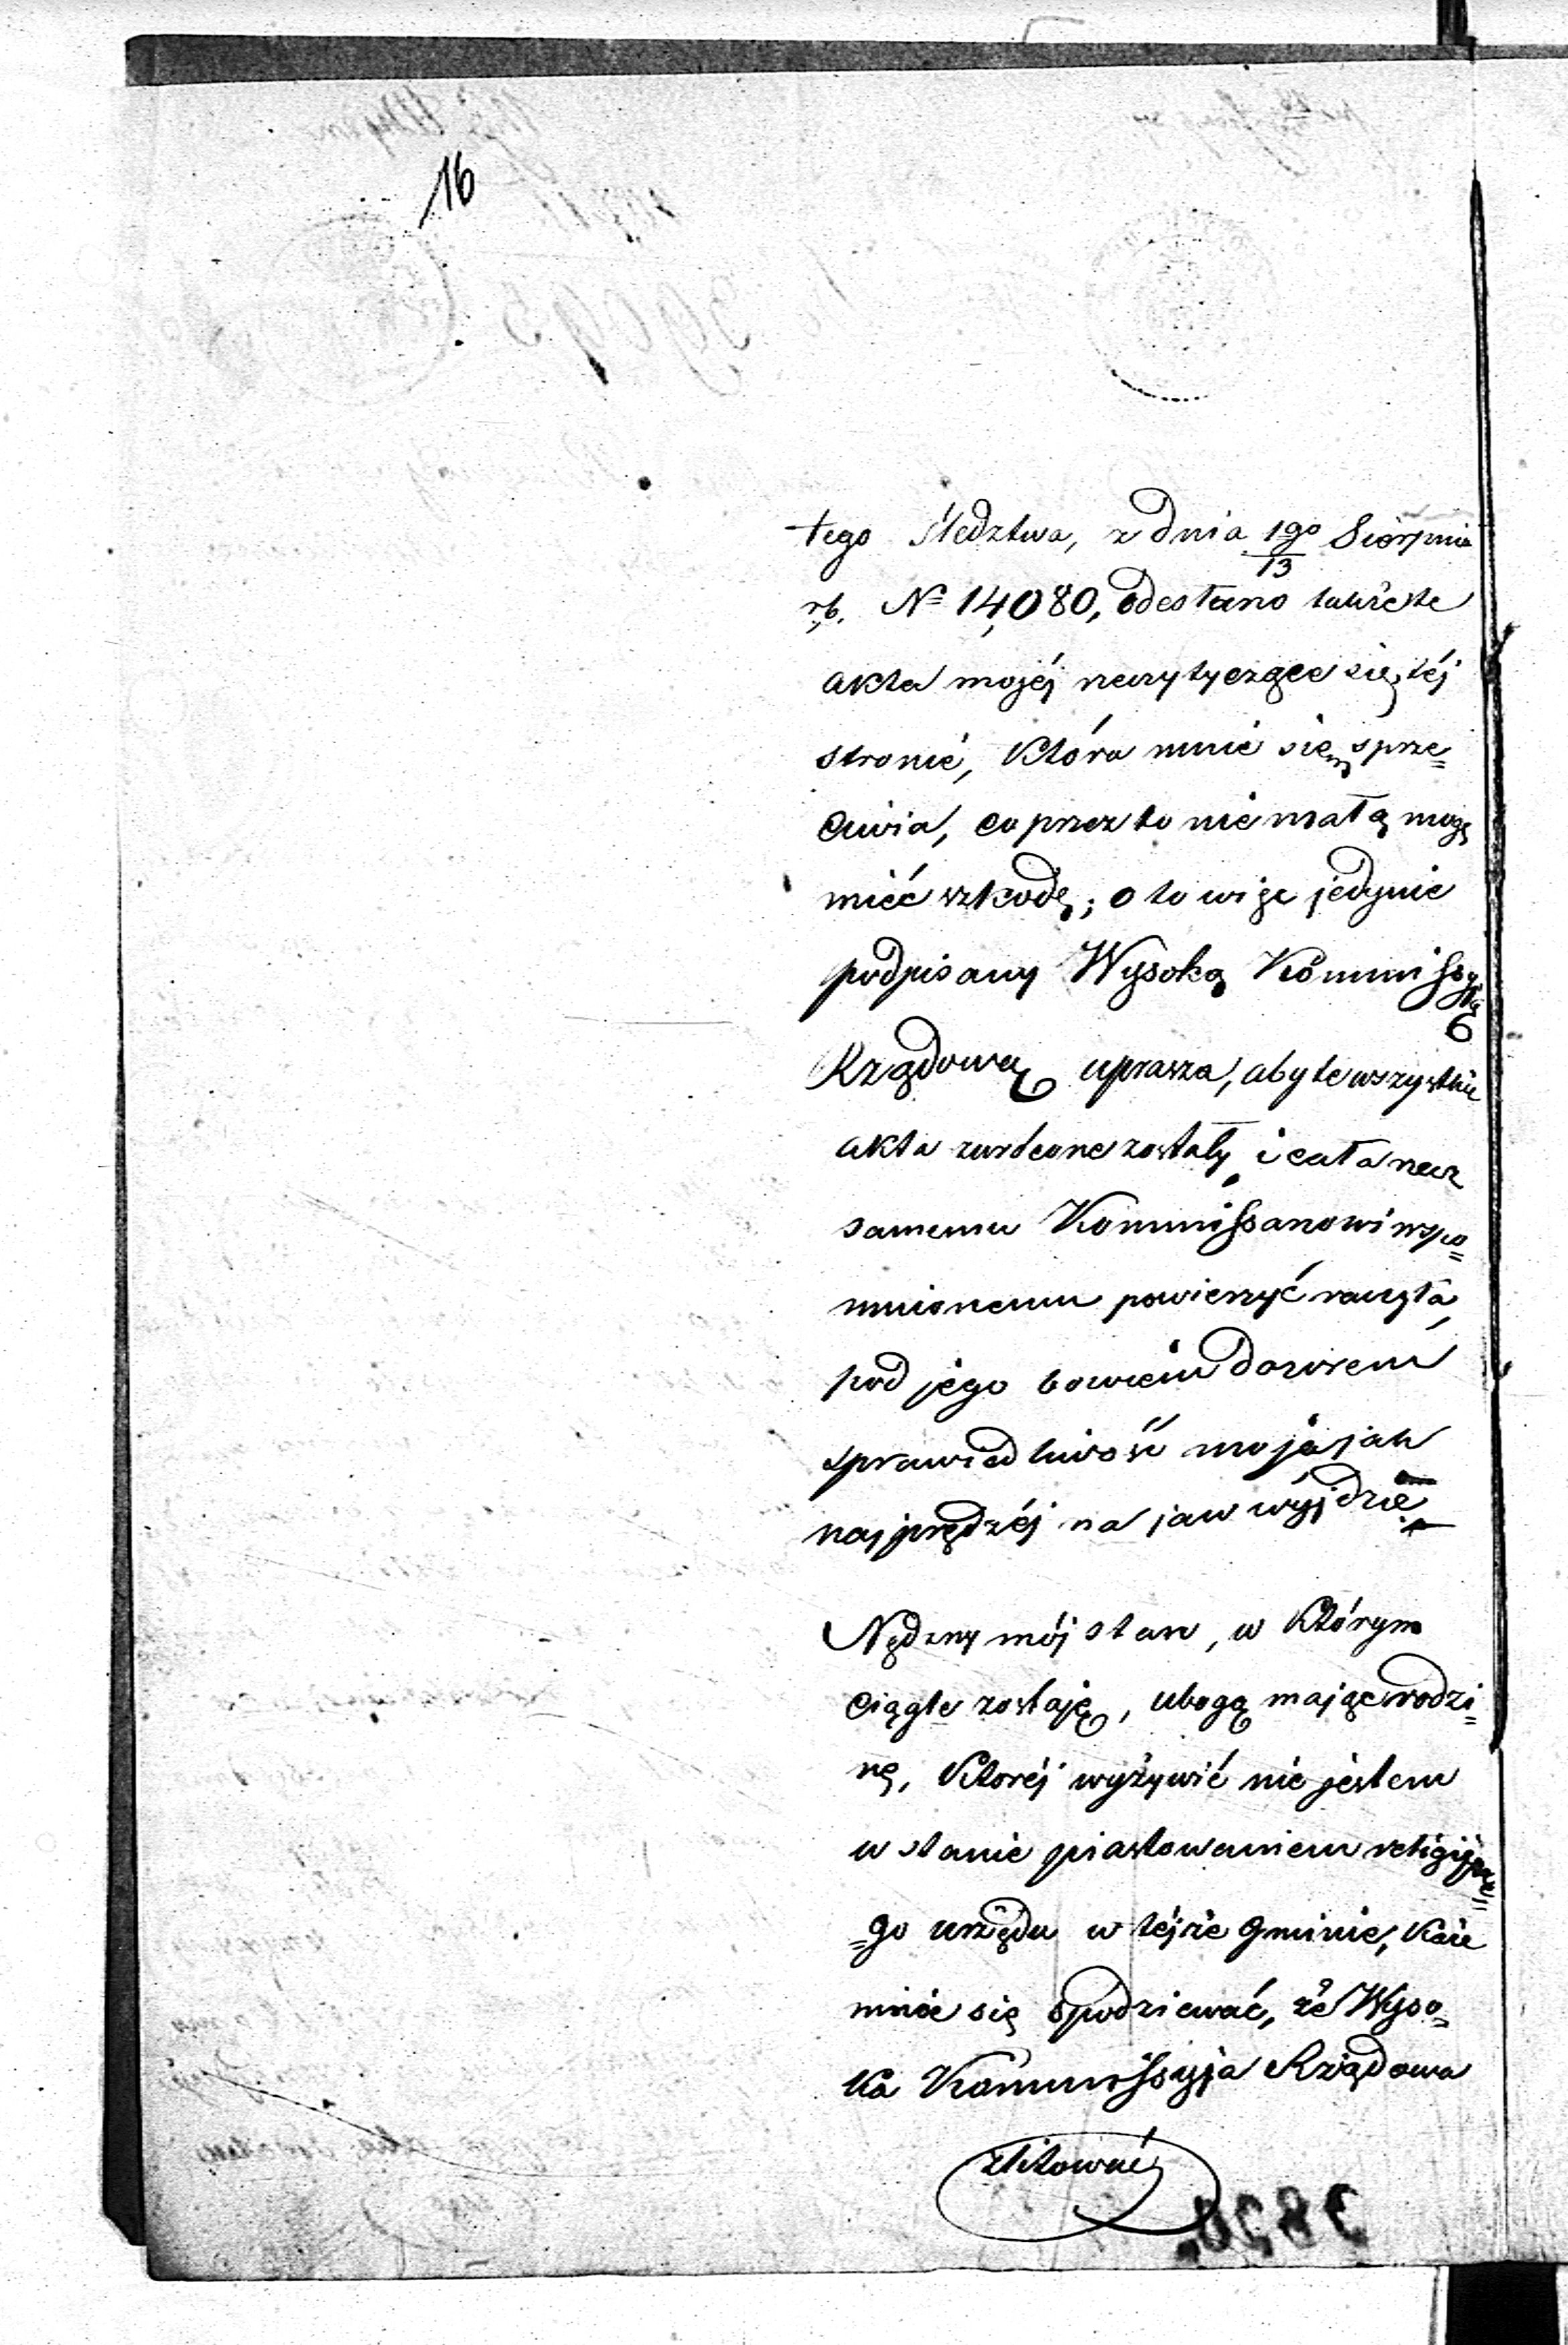 16
tego śledztwa, z dnia 1go/13 Sierpnia
r.b. № 14,080, odesłano także te
akta mojéj necyty czące się, téj
stronie, która mnie się sprze=
ciwia, co przez to nie małą mogę
mieć szkodę; o to więc jedynie
podpisany Wysoką Kommissyją
Rządową uprasza, aby te wszystkie
akta zwrócone zostały i cała rzecz
samemu Kommissarzowi wspo=
mnionemu powierzyć raczyła,
pod jego bowiem dozorem
sprawiedliwość moja jak
najprędzéj na jaw wyjdzie.
Nędzny mój stan, w którym
ciągle zostaję, ubogą mając rodzi=
nę, któréj wyżywić nie jestem
w stanie piastowaniem religijne=
=go urzędu w téjże Gminie, każe
mnie się spodziewać, że Wyso=
ka Kommissyja Rządowa
zlitować